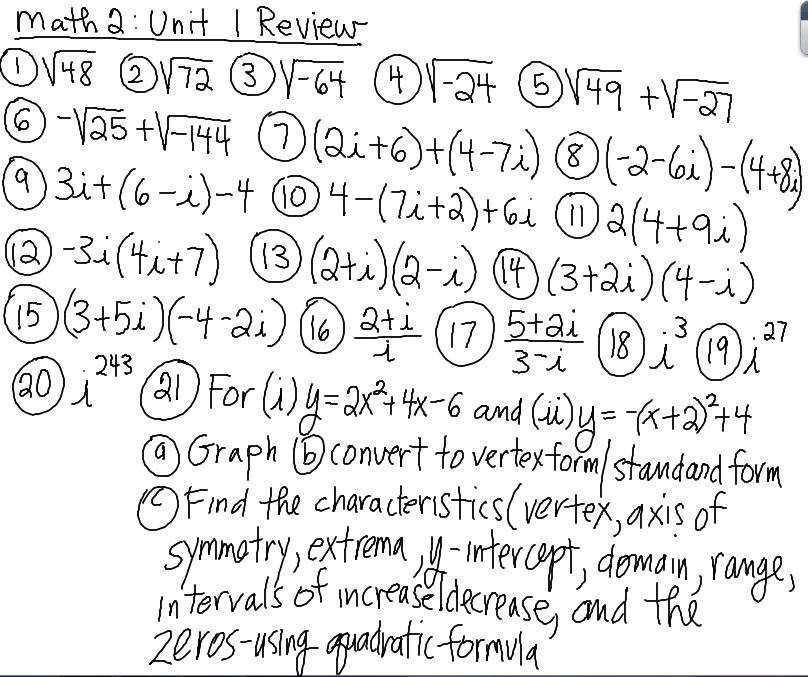 Math 2: Unit 1 Review
① √48 ② √72 ③ √-64 ④ √-24 ⑤ √49 + √-27
⑥ -√25 + √-144 ⑦ (2i+6)+(4-7i) ⑧ (-2-6i)-(4+8i)
⑨ 3i+(6-i)-4 ⑩ 4-(7i+2)+6i ⑪ 2(4+9i)
⑫ -3i(4i+7) ⑬ (2+i)(2-i) ⑭ (3+2i)(4-i)
⑮ (3+5i)(-4-2i) ⑯ (2+i)/i ⑰ (5+2i)/(3-i) ⑱ i³ ⑲ i²⁷
⑳ i²⁴³ ㉑ For (i) y=2x²+4x-6 and (ii) y=-(x+2)²+4
ⓐ Graph ⓑ convert to vertex form/standard form
ⓒ Find the characteristics (vertex, axis of
symmetry, extrema, y-intercept, domain, range,
intervals of increase/decrease, and the
zeros-using quadratic formula